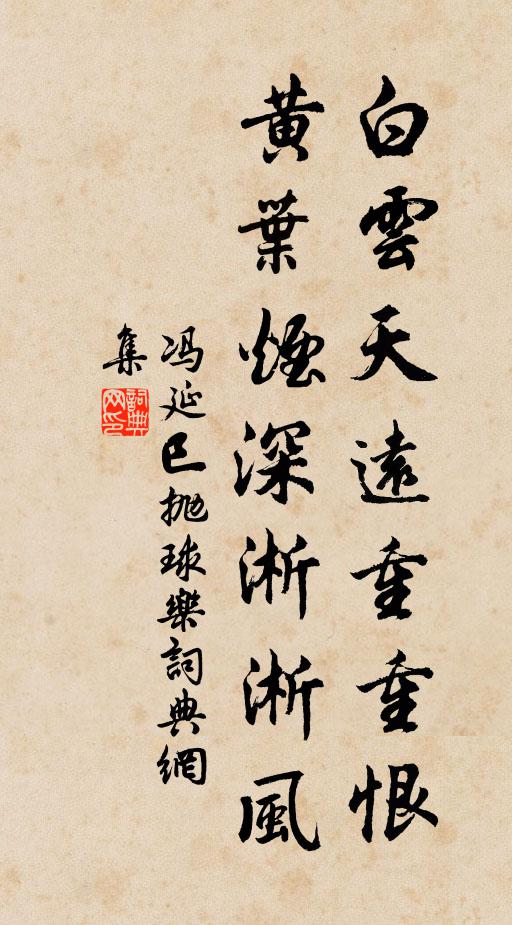 白雲天遠重重恨
黃葉煙深淅淅風
冯延巳抛球樂詞典網
集
詞典网印